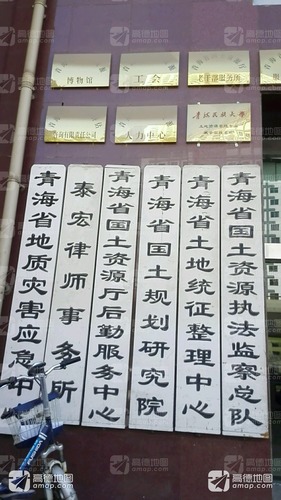 博物馆
工会
老干部服务所
咨询有限责任公司
人力中心
青海民族大学
青海省国土资源执法监察总队
青海省土地统征整理中心
青海省国土规划研究院
青海省国土资源厅后勤服务中心
泰宏律师事务所
青海省地质灾害应急中
高德地图
amap.com